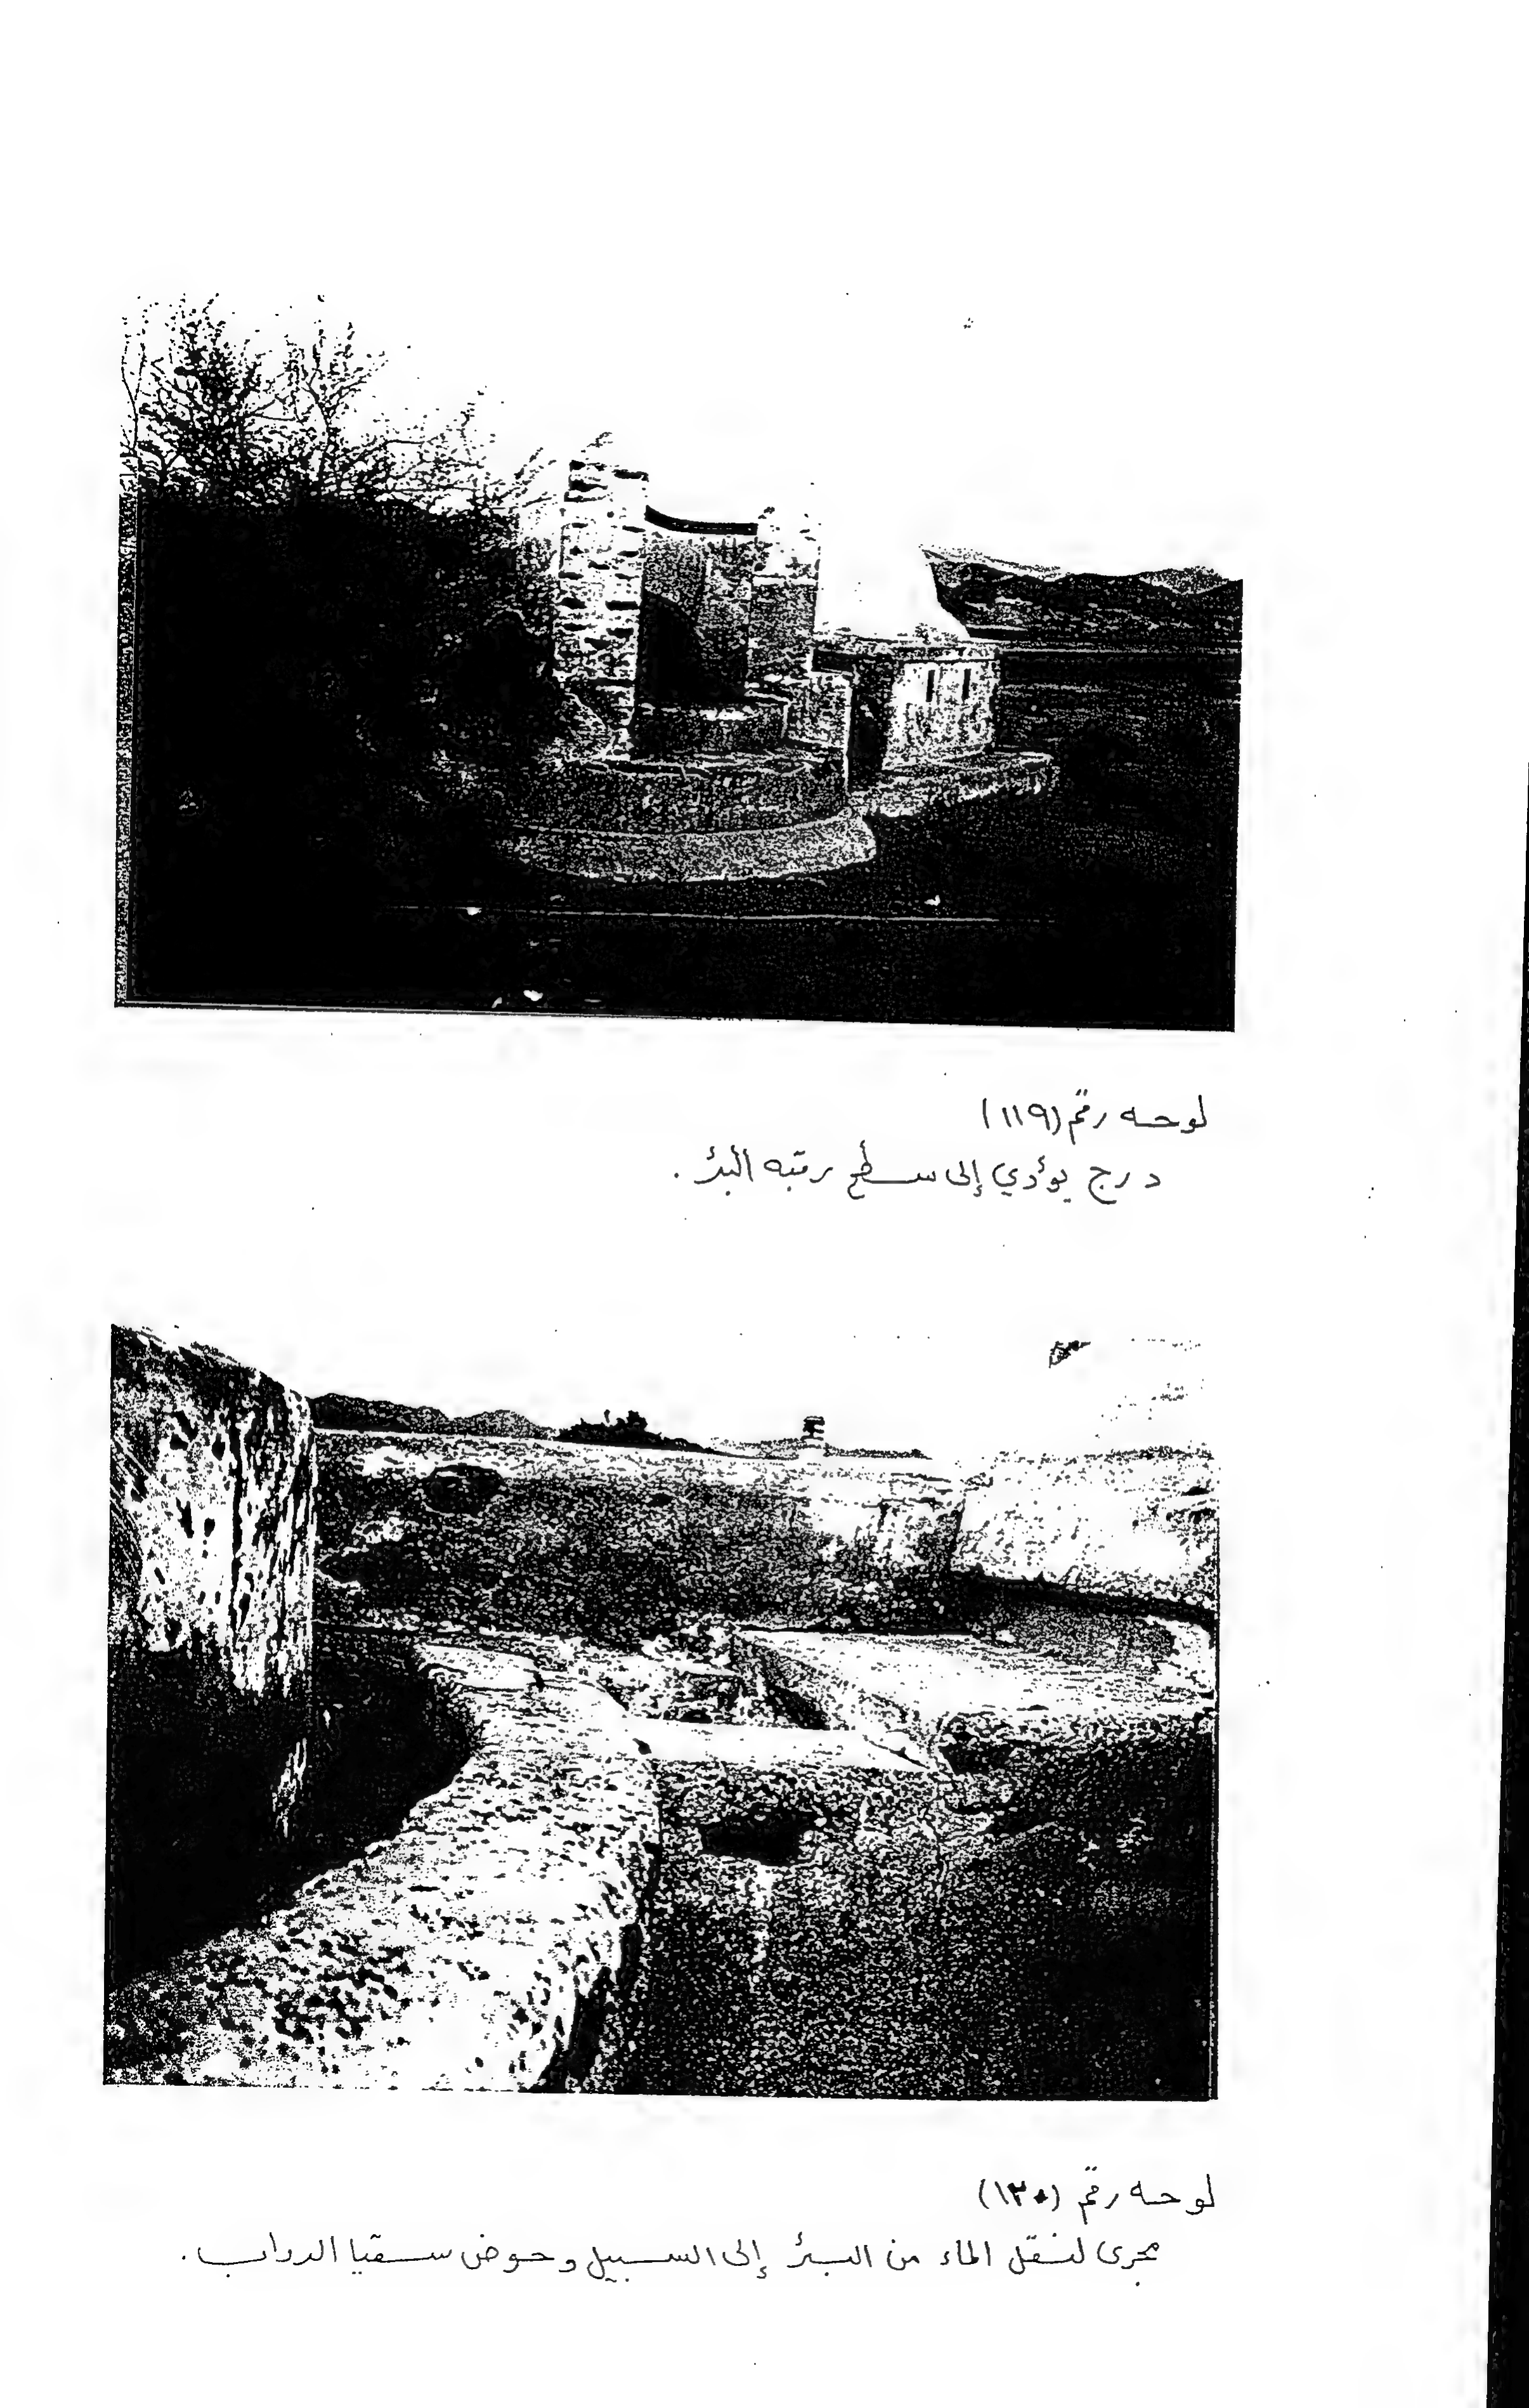 لوحه رقم (١١٩)
درج يؤدي إلى سطح رقبه البئر .
لوحه رقم (١٢٠)
مجرى لنقل الماء من البئر إلى السبيل وحوض سقيا الدواب .